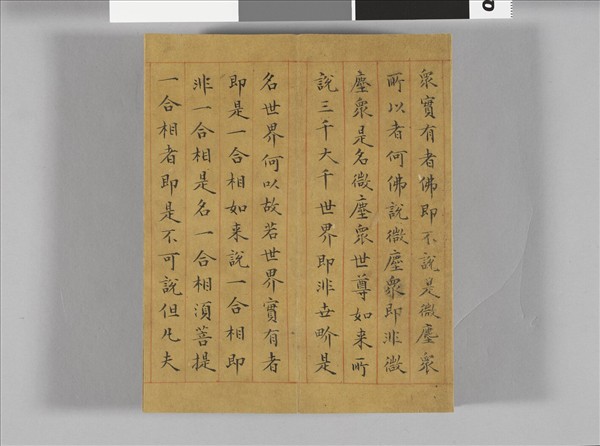 衆實有者佛即不說是微塵衆
所以者何佛說微塵衆即非微
塵衆是名微塵衆世尊如来所
說三千大千世界即非世界是
名世界何以故若世界實有者
即是一合相如来說一合相即
非一合相是名一合相湏菩提
一合相者即是不可說但凡夫